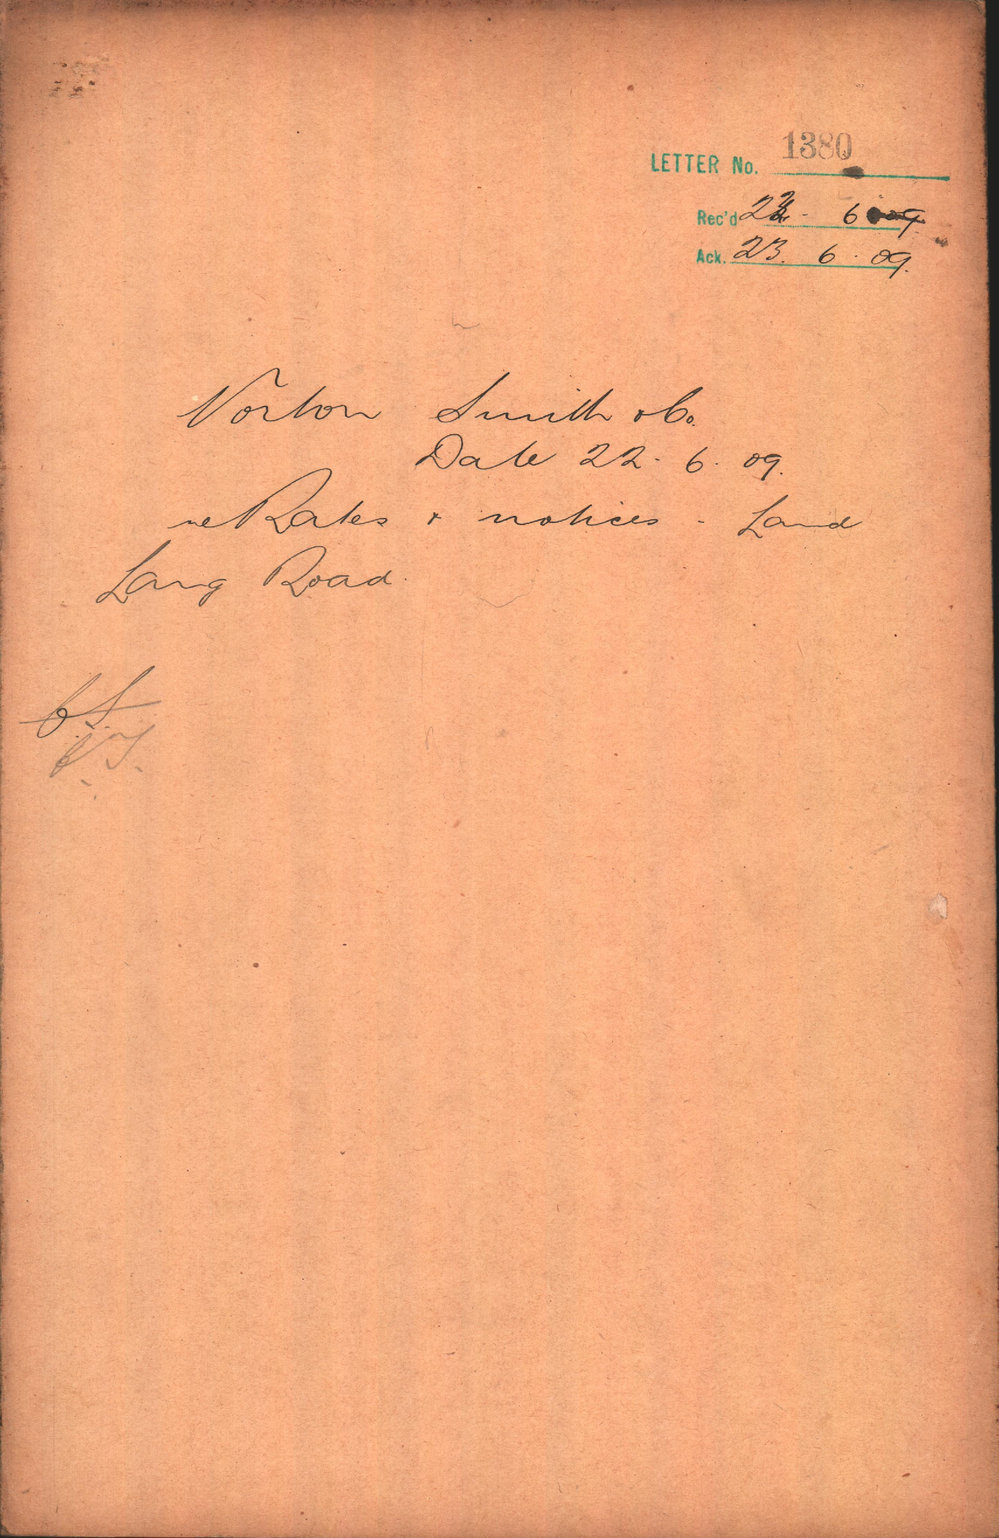 LETTER No. 1380
Rec'd 23. 6 09
Ack. 23. 6. 09.
Norton Smith & Co.
Date 22. 6. 09.
re Rates & notices - Land
Lang Road.